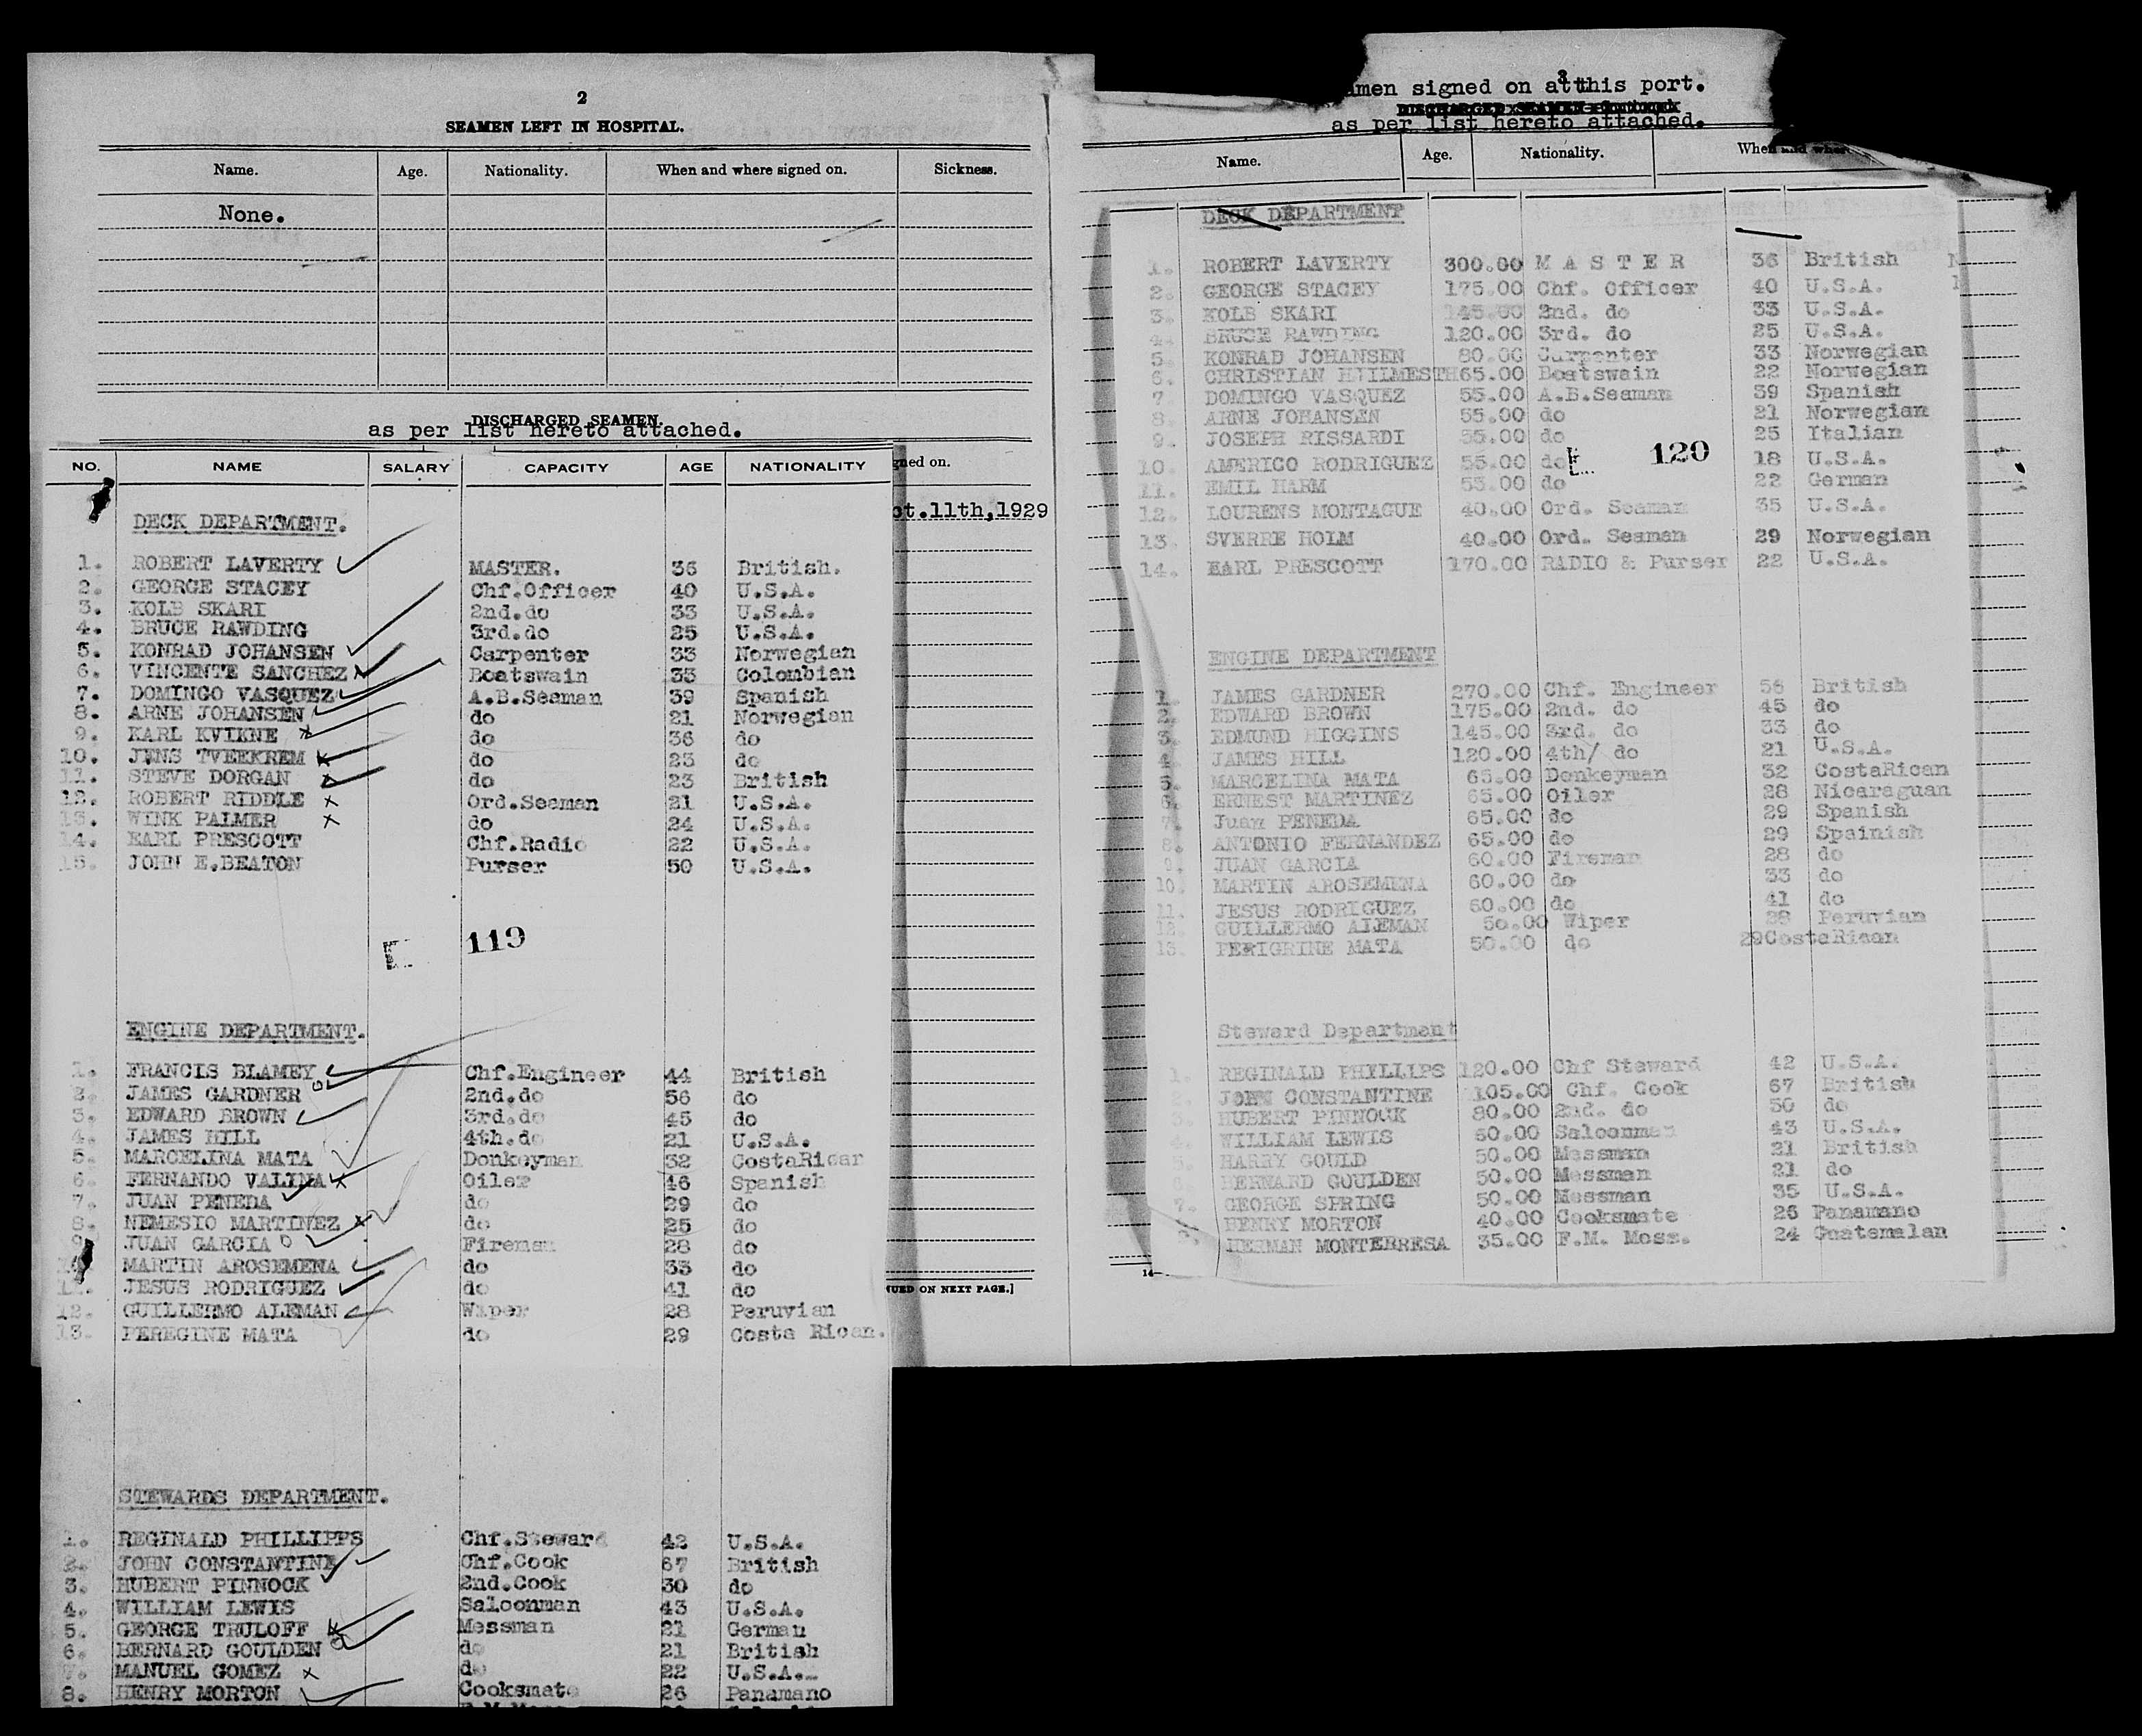 2
SEAMEN LEFT IN HOSPITAL.
Name. Age. Nationality. When and where signed on. Sickness.
None.
DISCHARGED SEAMEN.
as per list hereto attached.
gned on.
ct.11th,1929
NO. NAME SALARY CAPACITY AGE NATIONALITY
DECK DEPARTMENT.
1. ROBERT LAVERTY MASTER. 36 British.
2. GEORGE STACEY Chf.Officer 40 U.S.A.
3. KOLB SKARI 2nd.do 33 U.S.A.
4. BRUCE RAWDING 3rd.do 25 U.S.A.
5. KONRAD JOHANSEN Carpenter 33 Norwegian
6. VINCENTE SANCHEZ Boatswain 33 Colombian
7. DOMINGO VASQUEZ A.B.Seaman 39 Spanish
8. ARNE JOHANSEN do 21 Norwegian
9. KARL KVIKNE do 36 do
10. JENS TVEEKREM do 23 do
11. STEVE DORGAN do 23 British
12. ROBERT RIDDLE Ord.Seaman 21 U.S.A.
13. WINK PALMER do 24 U.S.A.
14. EARL PRESCOTT Chf.Radio 22 U.S.A.
15. JOHN E.BEATON Purser 50 U.S.A.
119
ENGINE DEPARTMENT.
1. FRANCIS BLAMEY Chf.Engineer 44 British
2. JAMES GARDNER 2nd.do 56 do
3. EDWARD BROWN 3rd.do 45 do
4. JAMES HILL 4th.do 21 U.S.A.
5. MARCELINA MATA Donkeyman 32 CostaRican
6. FERNANDO VALINA Oiler 46 Spanish
7. JUAN PENEDA do 29 do
8. NEMESIO MARTINEZ do 25 do
9. JUAN GARCIA Fireman 28 do
MARTIN AROSEMENA do 33 do
11. JESUS RODRIGUEZ do 41 do
12. GUILLERMO ALEMAN Wiper 28 Peruvian
13. PEREGINE MATA do 29 Costa Rican.
STEWARDS DEPARTMENT.
1. REGINALD PHILLIPPS Chf.Steward 42 U.S.A.
2. JOHN CONSTANTINE Chf.Cook 67 British
3. HUBERT PINNOCK 2nd.Cook 30 do
4. WILLIAM LEWIS Saloonman 43 U.S.A.
5. GEORGE TRULOFF Messman 21 German
6. BERNARD GOULDEN do 21 British
7. MANUEL GOMEZ do 22 U.S.A.
8. HENRY MORTON Cooksmate 26 Panamano
NUED ON NEXT PAGE.]
3
amen signed on at this port.
DISCHARGED SEAMEN—Continued
as per list hereto attached.
Name. Age. Nationality. When and where
DECK DEPARTMENT
1. ROBERT LAVERTY 300.00 M A S T E R 36 British
2. GEORGE STACEY 175.00 Chf. Officer 40 U.S.A.
3. KOLB SKARI 145.00 2nd. do 33 U.S.A.
4. BRUCE RAWDING 120.00 3rd. do 25 U.S.A.
5. KONRAD JOHANSEN 80.00 Carpenter 33 Norwegian
6. CHRISTIAN 65.00 Boatswain 22 Norwegian
7. DOMINGO VASQUEZ 55.00 A.B.Seaman 39 Spanish
8. ARNE JOHANSEN 55.00 do 21 Norwegian
9. JOSEPH RISSARDI 55.00 do 25 Italian
10. AMERICO RODRIGUEZ 55.00 do 18 U.S.A.
120
11. EMIL HARM 55.00 do 22 German
12. LOURENS MONTAGUE 40.00 Ord. Seaman 35 U.S.A.
13. SVERRE HOLM 40.00 Ord. Seaman 29 Norwegian
14. EARL PRESCOTT 170.00 RADIO & Purser 22 U.S.A.
ENGINE DEPARTMENT
1. JAMES GARDNER 270.00 Chf. Engineer 56 British
2. EDWARD BROWN 175.00 2nd. do 45 do
3. EDMUND HIGGINS 145.00 3rd. do 33 do
4. JAMES HILL 120.00 4th/ do 21 U.S.A.
5. MARCELINA MATA 65.00 Donkeyman 32 CostaRican
6. ERNEST MARTINEZ 65.00 Oiler 28 Nicaraguan
7. Juan PENEDA 65.00 do 29 Spanish
8. ANTONIO FERNANDEZ 65.00 do 29 Spainish
9. JUAN GARCIA 60.00 Fireman 28 do
10. MARTIN AROSEMENA 60.00 do 33 do
11. JESUS RODRIGUEZ 60.00 do 41 do
12. GUILLERMO ALEMAN 50.00 Wiper 28 Peruvian
13. PERIGRINE MATA 50.00 do 29CostaRican
Steward Department
1. REGINALD PHYLLIPS 120.00 Chf Steward 42 U.S.A.
2. JOHN CONSTANTINE 105.00 Chf. Cook 67 British
3. HUBERT PINNOCK 80.00 2nd. do 30 do
WILLIAM LEWIS 60.00 Saloonman 43 U.S.A.
5. HARRY GOULD 50.00 Messman 21 British
6. BERNARD GOULDEN 50.00 Messman 21 do
7. GEORGE SPRING 50.00 Messman 35 U.S.A.
HENRY MORTON 40.00 Cooksmate 26 Panamano
HERMAN MONTERRESA 35.00 F.M. Mess. 24 Guatemalan